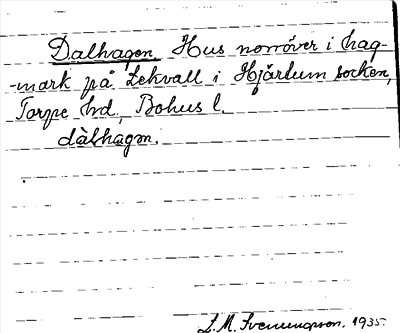 Dalhagen. Hus norröver i hag-
-mark på Lekvall i Hjärtum socken,
Torpe hd, Bohus l.
dàlhagen.
L. M. Svenungsson. 1935.